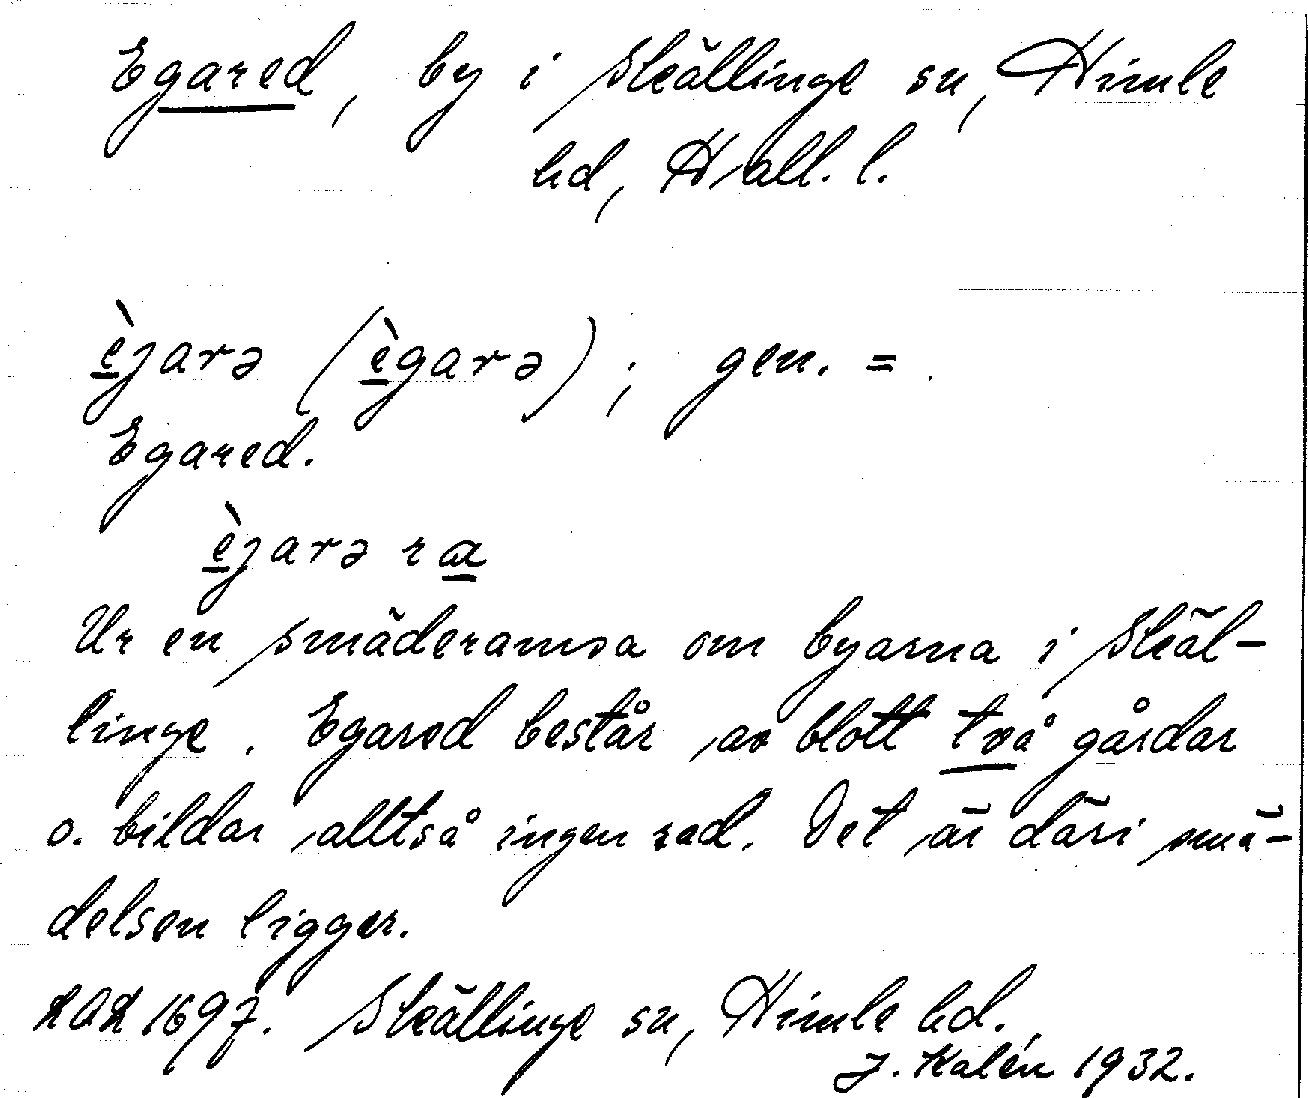 Egared, by i Skällinge sn, Himle
hd, Hall. l.
èjarə (ègarə); gen. =.
Egared.
èjarə ra
Ur en smäderamsa om byarna i Skäl-
linge. Egared består av blott två gårdar
o. bildar alltså ingen rad. Det är däri smä-
delsen ligger.
1697. Skällinge sn, Himle hd.
J. Kalén 1932.